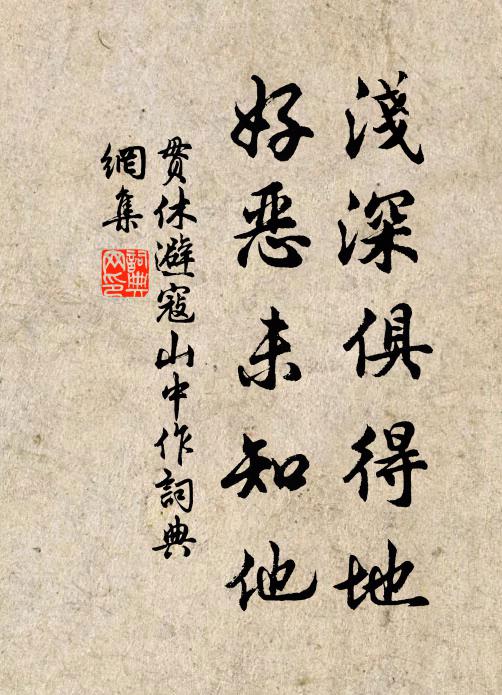 淺深俱得地
好惡未知他
貫休避寇山中作詞典
網集
詞典
网印